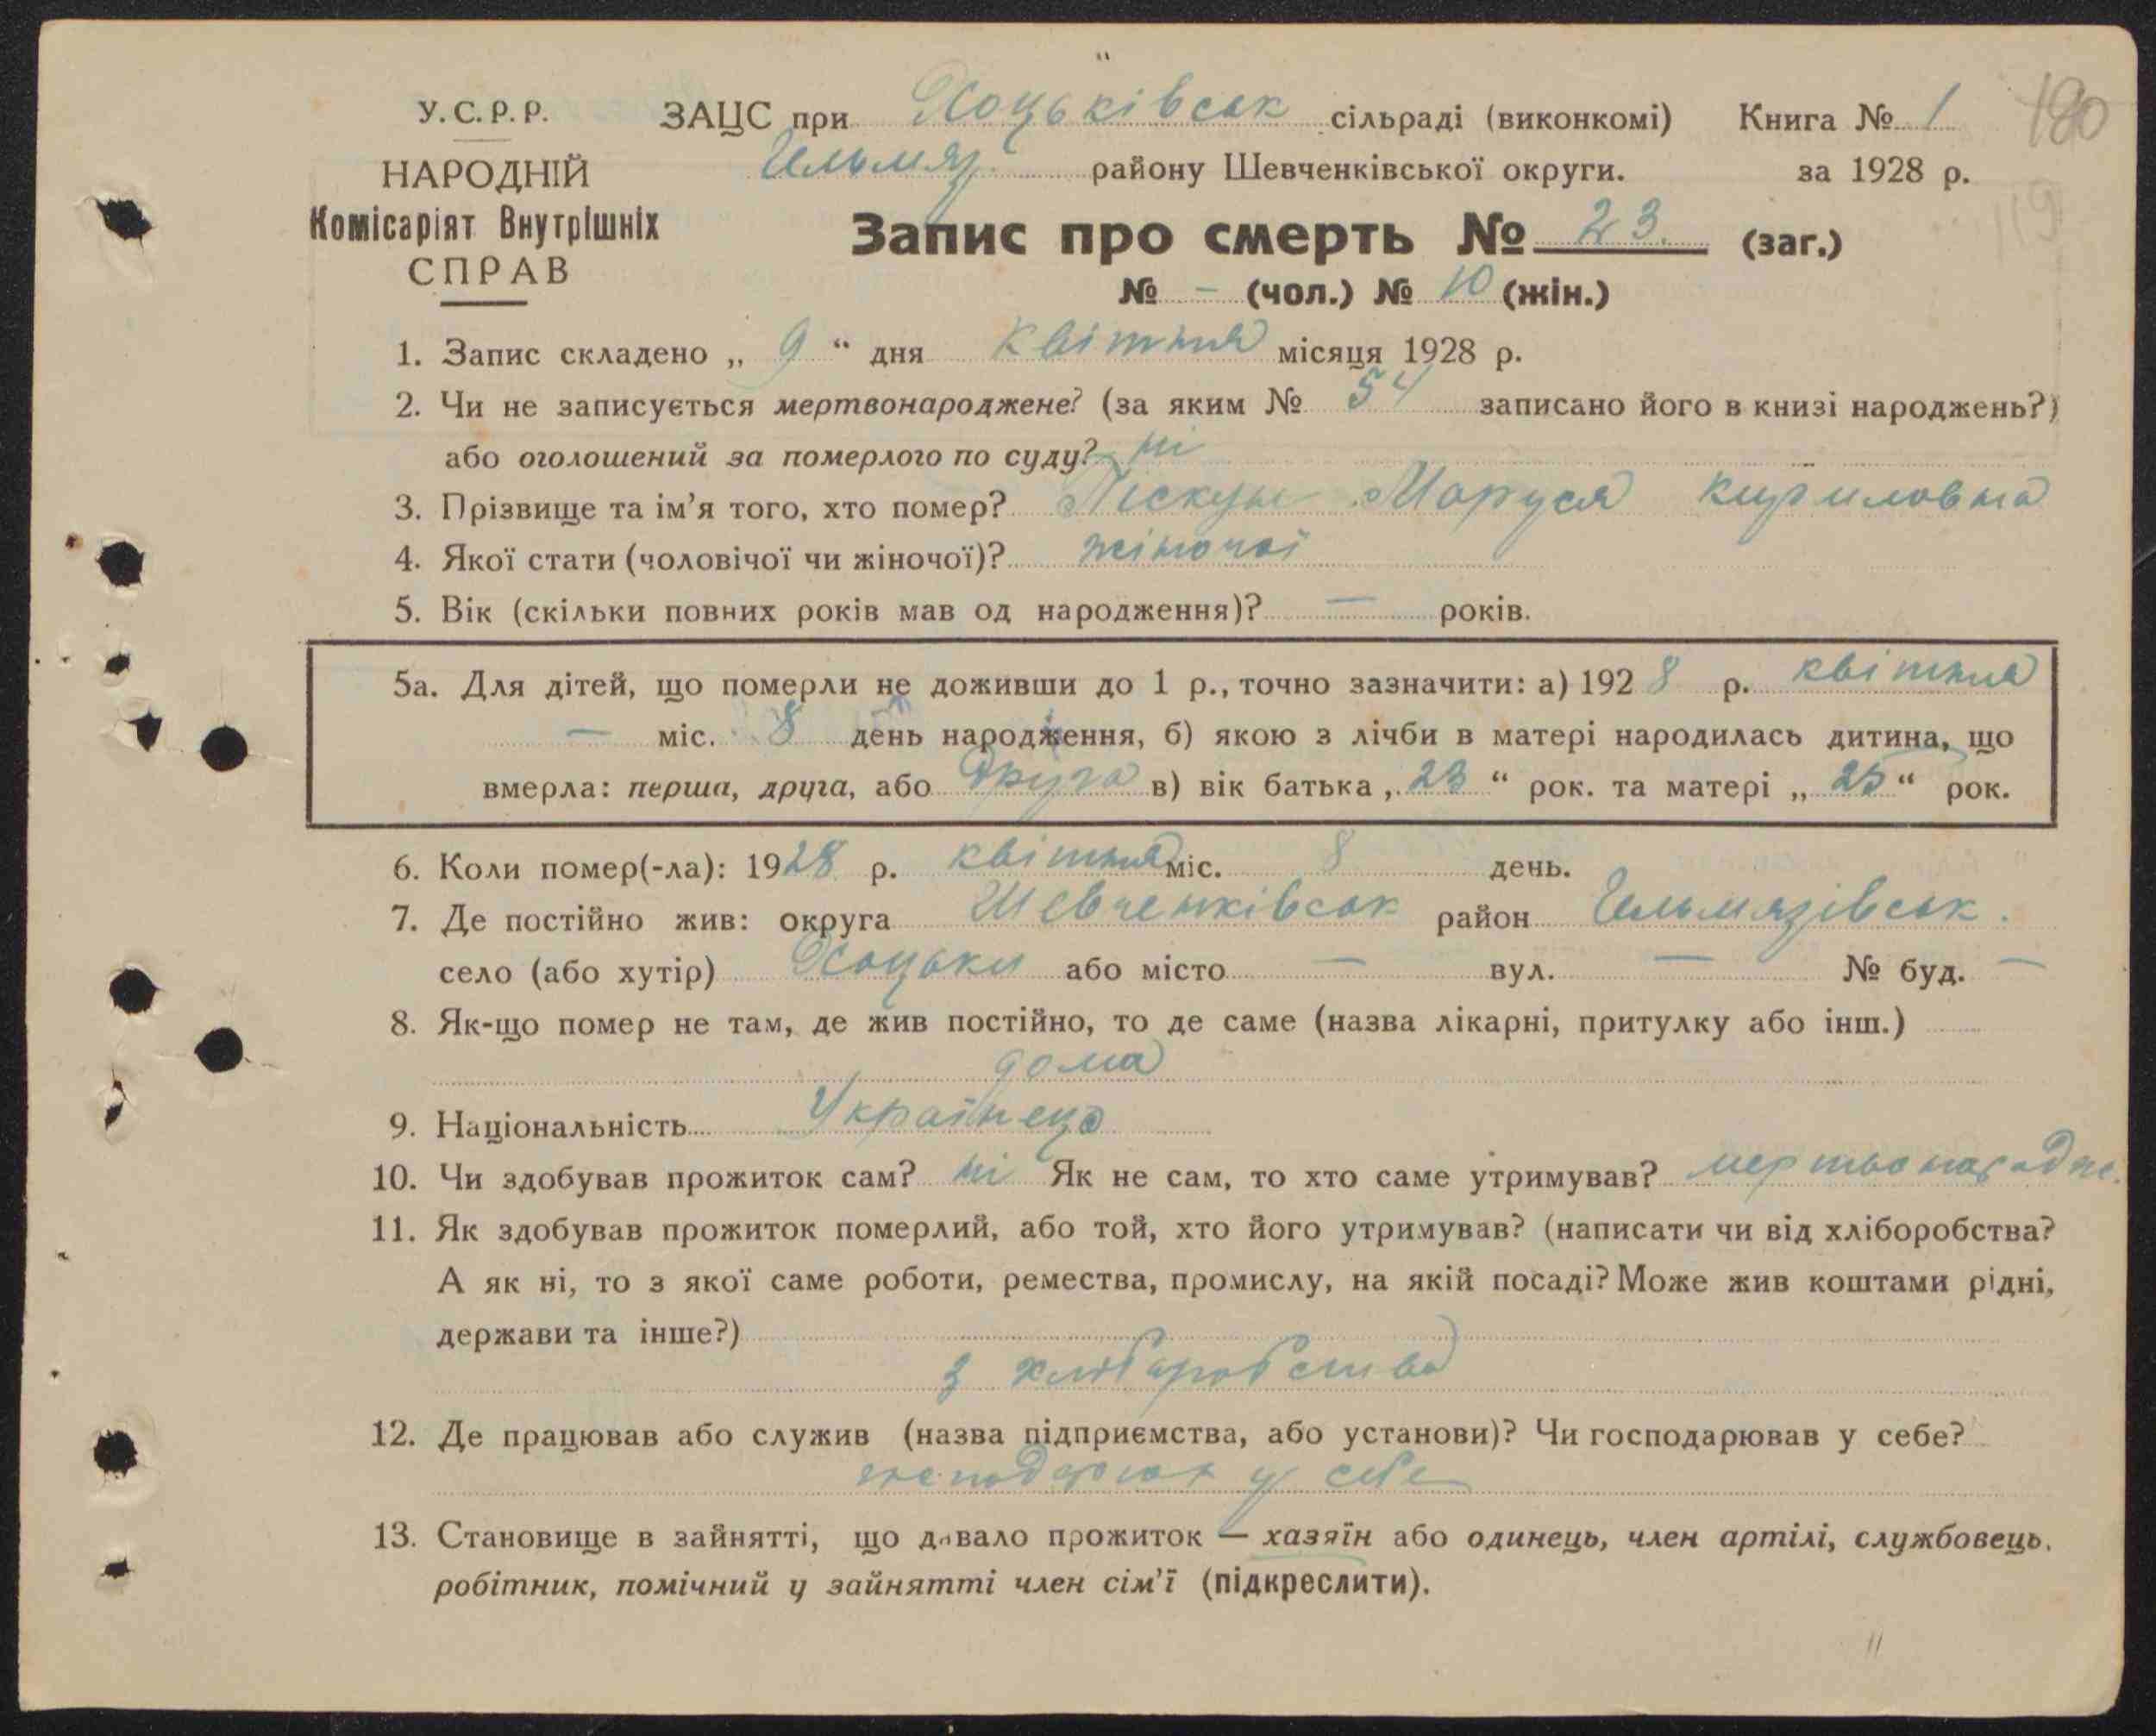 У.С.Р.Р. ЗАЦС при Хоцьківськ сільраді (виконкомі) Книга № 1 180
НАРОДНІЙ Гельмяз. району Шевченківської округи. за 1928 р.
Комісаріят Внутрішніх
СПРАВ
Запис про смерть № 23. (заг.)
119
№ - (чол.) № 10 (жін.)
1. Запис складено „ 9 “ дня квітня місяця 1928 р.
2. Чи не записується мертвонароджене? (за яким № 54 записано його в книзі народжень?)
або оголошений за померлого по суду? ні
3. Прізвище та ім’я того, хто помер? Пискун Маруся Кириловна
4. Якої стати (чоловічої чи жіночої)? жіночої
5. Вік (скільки повних років мав од народження)? — років.
5а. Для дітей, що померли не доживши до 1 р., точно зазначити: а) 1928 р. квітня
— міс. 8 день народження, б) якою з лічби в матері народилась дитина, що
вмерла: перша, друга, або друга в) вік батька „ 23 “ рок. та матері „ 25 “ рок.
6. Коли помер(-ла): 1928 р. квітня міс. 8 день.
7. Де постійно жив: округа Шевченківськ район Гельмязівськ.
село (або хутір) Хоцьки або місто — вул. — № буд. —
8. Як-що помер не там, де жив постійно, то де саме (назва лікарні, притулку або інш.)
дома
9. Національність Українець
10. Чи здобував прожиток сам? ні Як не сам, то хто саме утримував? мертвонародже.
11. Як здобував прожиток померлий, або той, хто його утримував? (написати чи від хліборобства?
А як ні, то з якої саме роботи, ремества, промислу, на якій посаді? Може жив коштами рідні,
держави та інше?)
з хліборобства
12. Де працював або служив (назва підприємства, або установи)? Чи господарював у себе?
у себе
13. Становище в зайнятті, що давало прожиток — хазяїн або одинець, член артілі, службовець,
робітник, помічний у зайнятті член сім’ї (підкреслити).